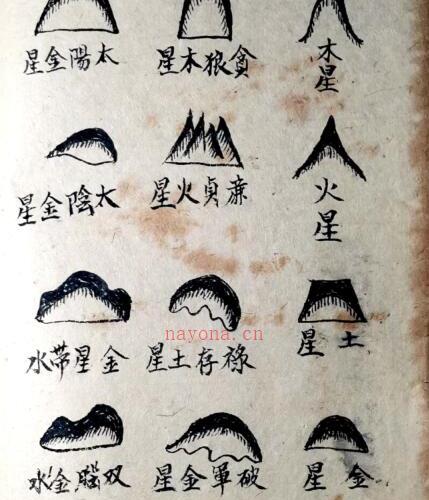 木星
貪狼木星
太陽金星
火星
廉貞火星
太陰金星
土星
祿存土星
金星帶水
金星
破軍金星
双腦金水
nayona.cn